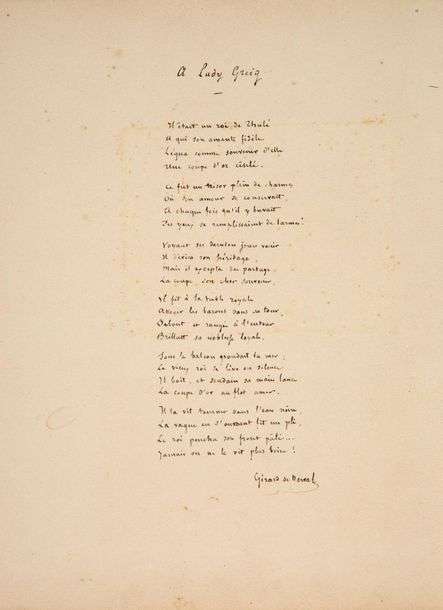 A Lady Greig
Il était un roi de Thulé
A qui son amante fidèle
Légua comme souvenir d'elle
Une coupe d'or ciselé.
Ce fut un trésor plein de charmes
Où son amour se conservait
A chaque fois qu'il y buvait
Ses yeux se remplissaient de larmes !
Voyant ses derniers jours venir
Il divisa son héritage,
Mais il excepta du partage
La coupe, son cher souvenir.
Il fit à la table royale
Asseoir les barons dans sa tour,
Debout et rangée à l'entour
Brillait sa noblesse loyale.
Sous le balcon grondait la mer,
Le vieux roi se lève en silence
Il boit, et soudain sa main lance
La coupe d'or au flot amer.
Il la vit tourner dans l'eau noire
La vague en s'ouvrant fit un pli,
Le roi pencha son front pâli...
Jamais on ne le vit plus boire !
Gérard de Nerval